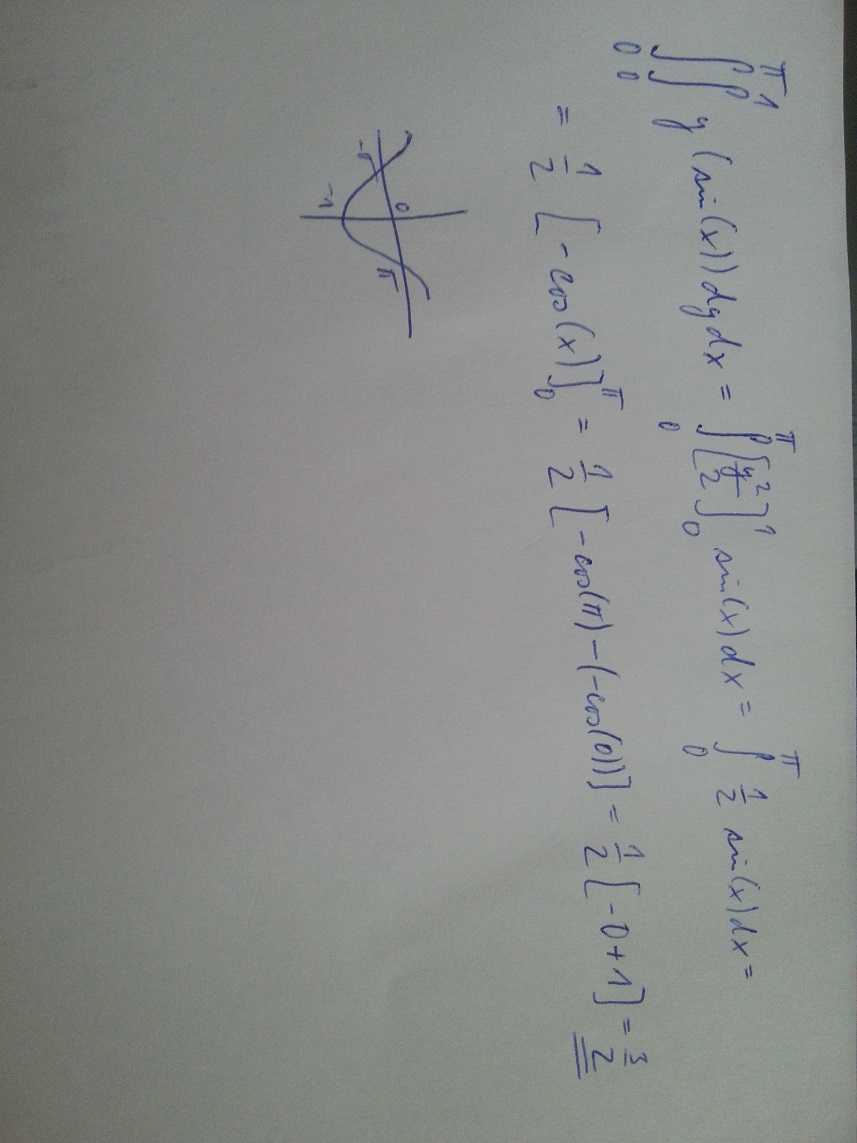 ∫₀^π ∫₀^1 y (sin(x)) dy dx = ∫₀^π [y²/2]₀^1 sin(x) dx = ∫₀^π 1/2 sin(x) dx =
= 1/2 [-cos(x)]₀^π = 1/2 [-cos(π) - (-cos(0))] = 1/2 [-0+1] = 3/2
0
π
-1